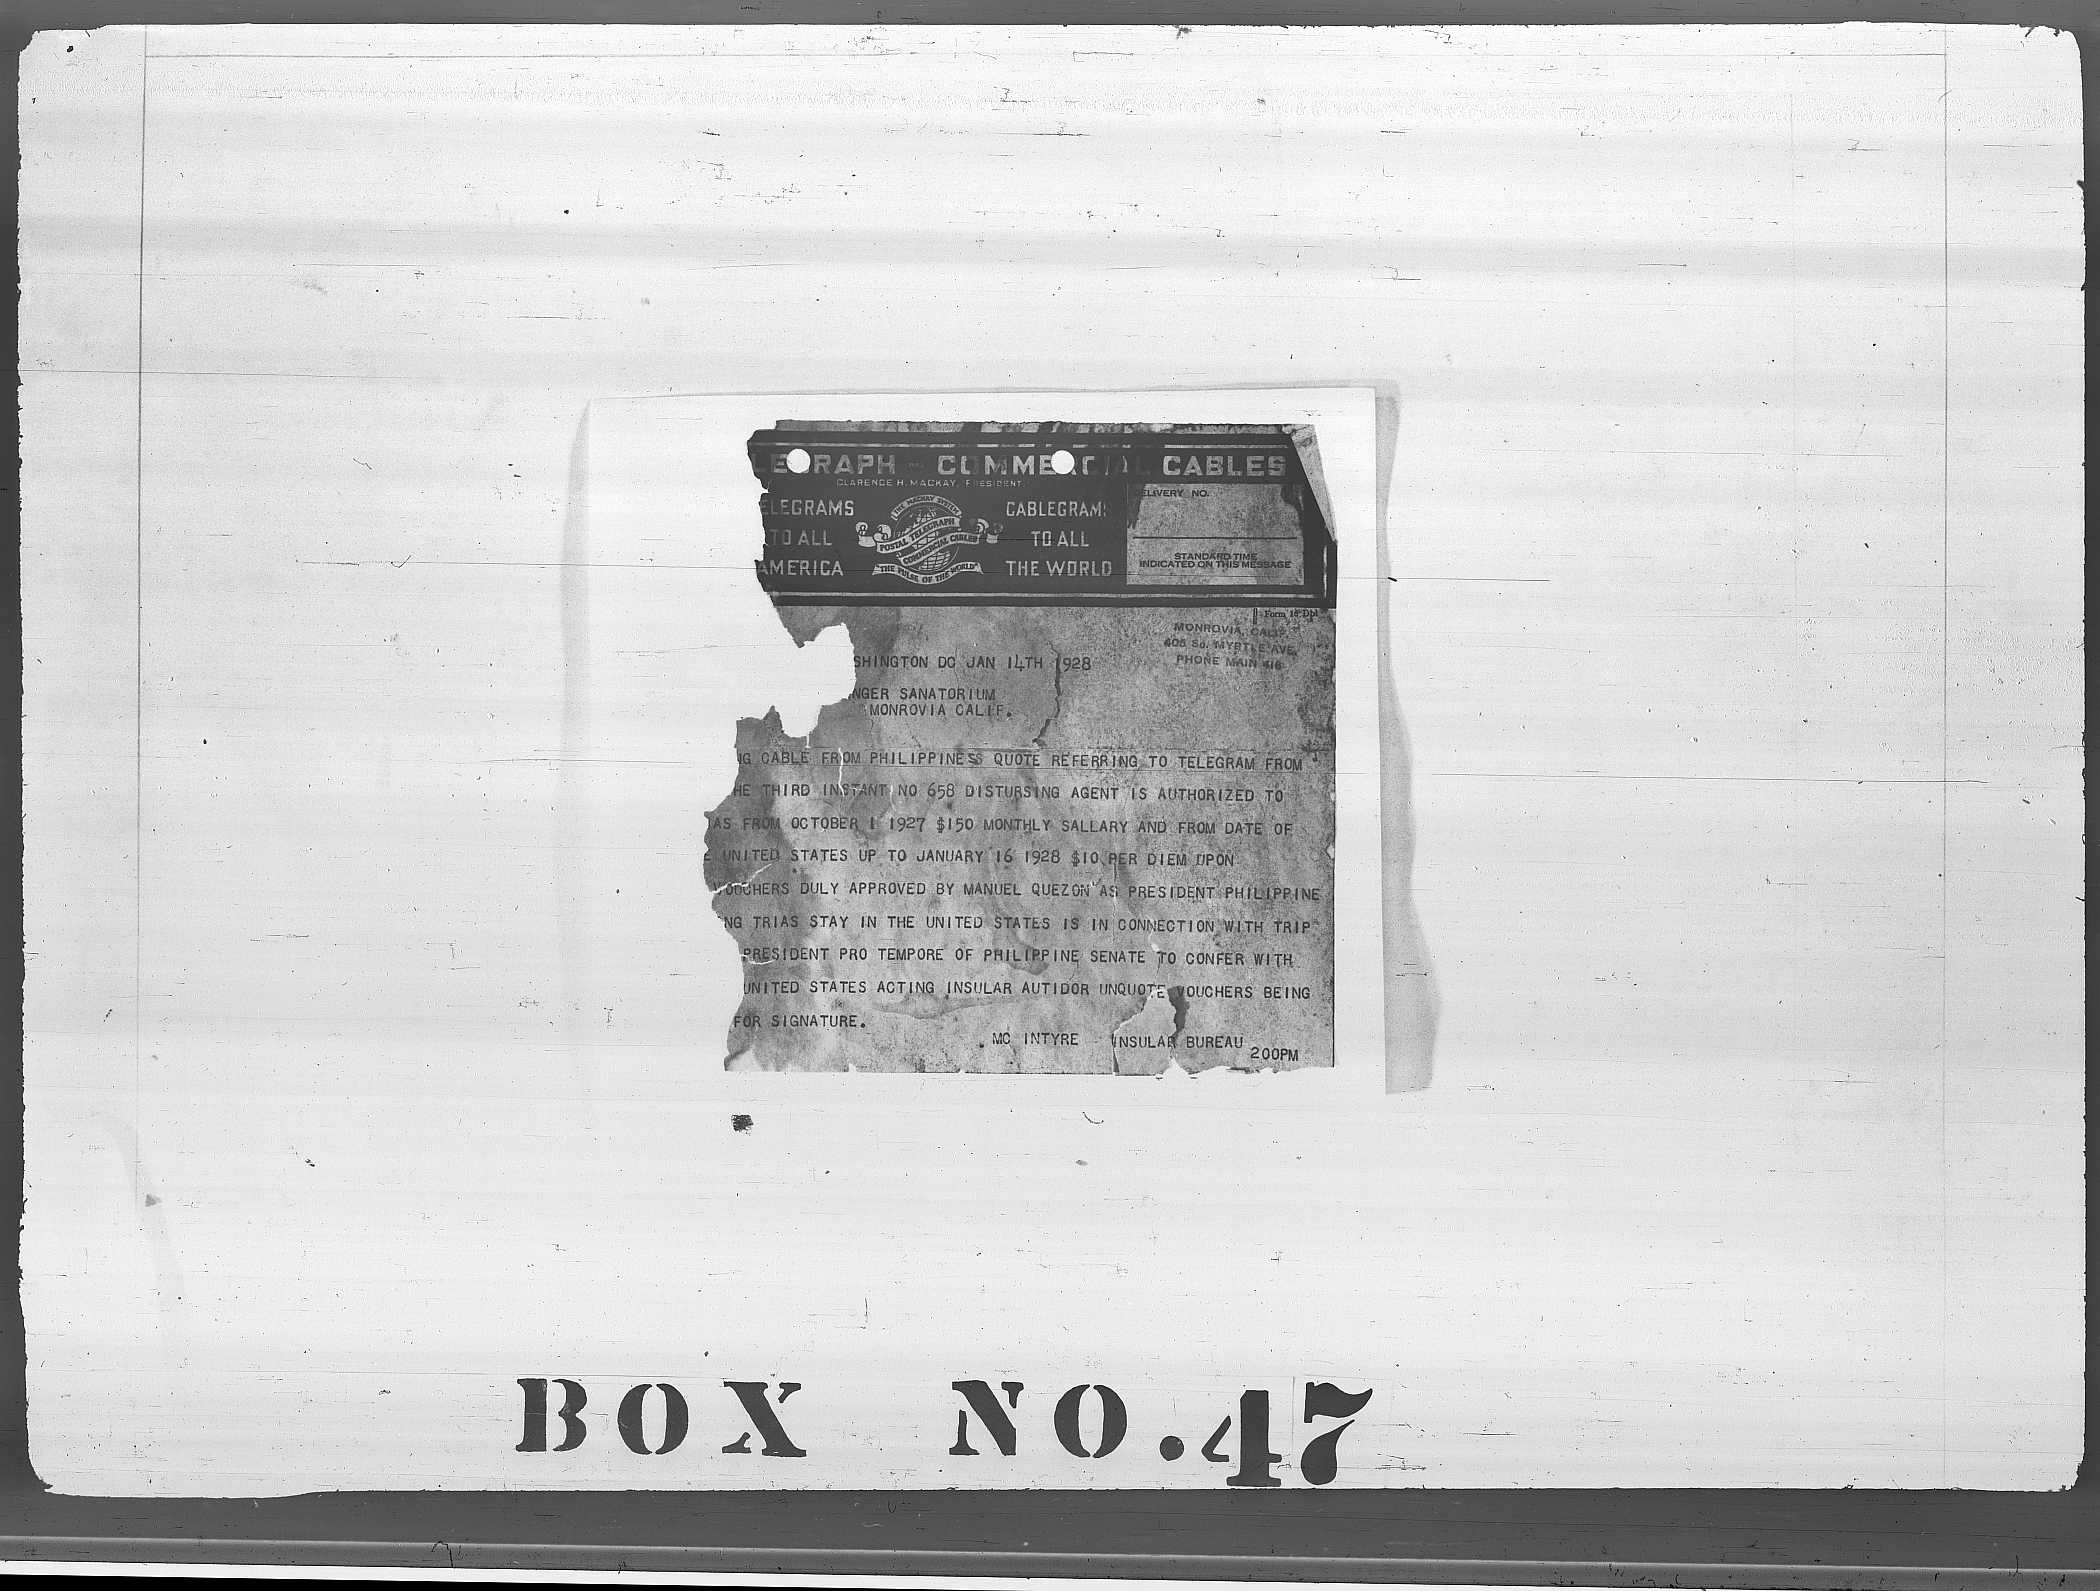 LEGRAPH - COMMERCIAL CABLES
CLARENCE H. MACKAY, PRESIDENT
ELEGRAMS
TO ALL
AMERICA
THE MACKAY SYSTEM
POSTAL TELEGRAPH
COMMERCIAL CABLES
"THE PULSE OF THE WORLD"
CABLEGRAMS
TO ALL
THE WORLD
DELIVERY NO.
STANDARD TIME
INDICATED ON THIS MESSAGE
Form 16 Dpl
MONROVIA, CALIF.
405 So. MYRTLE AVE.
PHONE MAIN 416
SHINGTON DC JAN 14TH 1928
NGER SANATORIUM
MONROVIA CALIF.
NG CABLE FROM PHILIPPINESS QUOTE REFERRING TO TELEGRAM FROM
HE THIRD INSTANT NO 658 DISTURSING AGENT IS AUTHORIZED TO
AS FROM OCTOBER 1 1927 $150 MONTHLY SALLARY AND FROM DATE OF
E UNITED STATES UP TO JANUARY 16 1928 $10 PER DIEM UPON
VOUCHERS DULY APPROVED BY MANUEL QUEZON AS PRESIDENT PHILIPPINE
NG TRIAS STAY IN THE UNITED STATES IS IN CONNECTION WITH TRIP
PRESIDENT PRO TEMPORE OF PHILIPPINE SENATE TO CONFER WITH
UNITED STATES ACTING INSULAR AUTIDOR UNQUOTE VOUCHERS BEING
FOR SIGNATURE.
MC INTYRE INSULAR BUREAU
200PM
BOX NO. 47